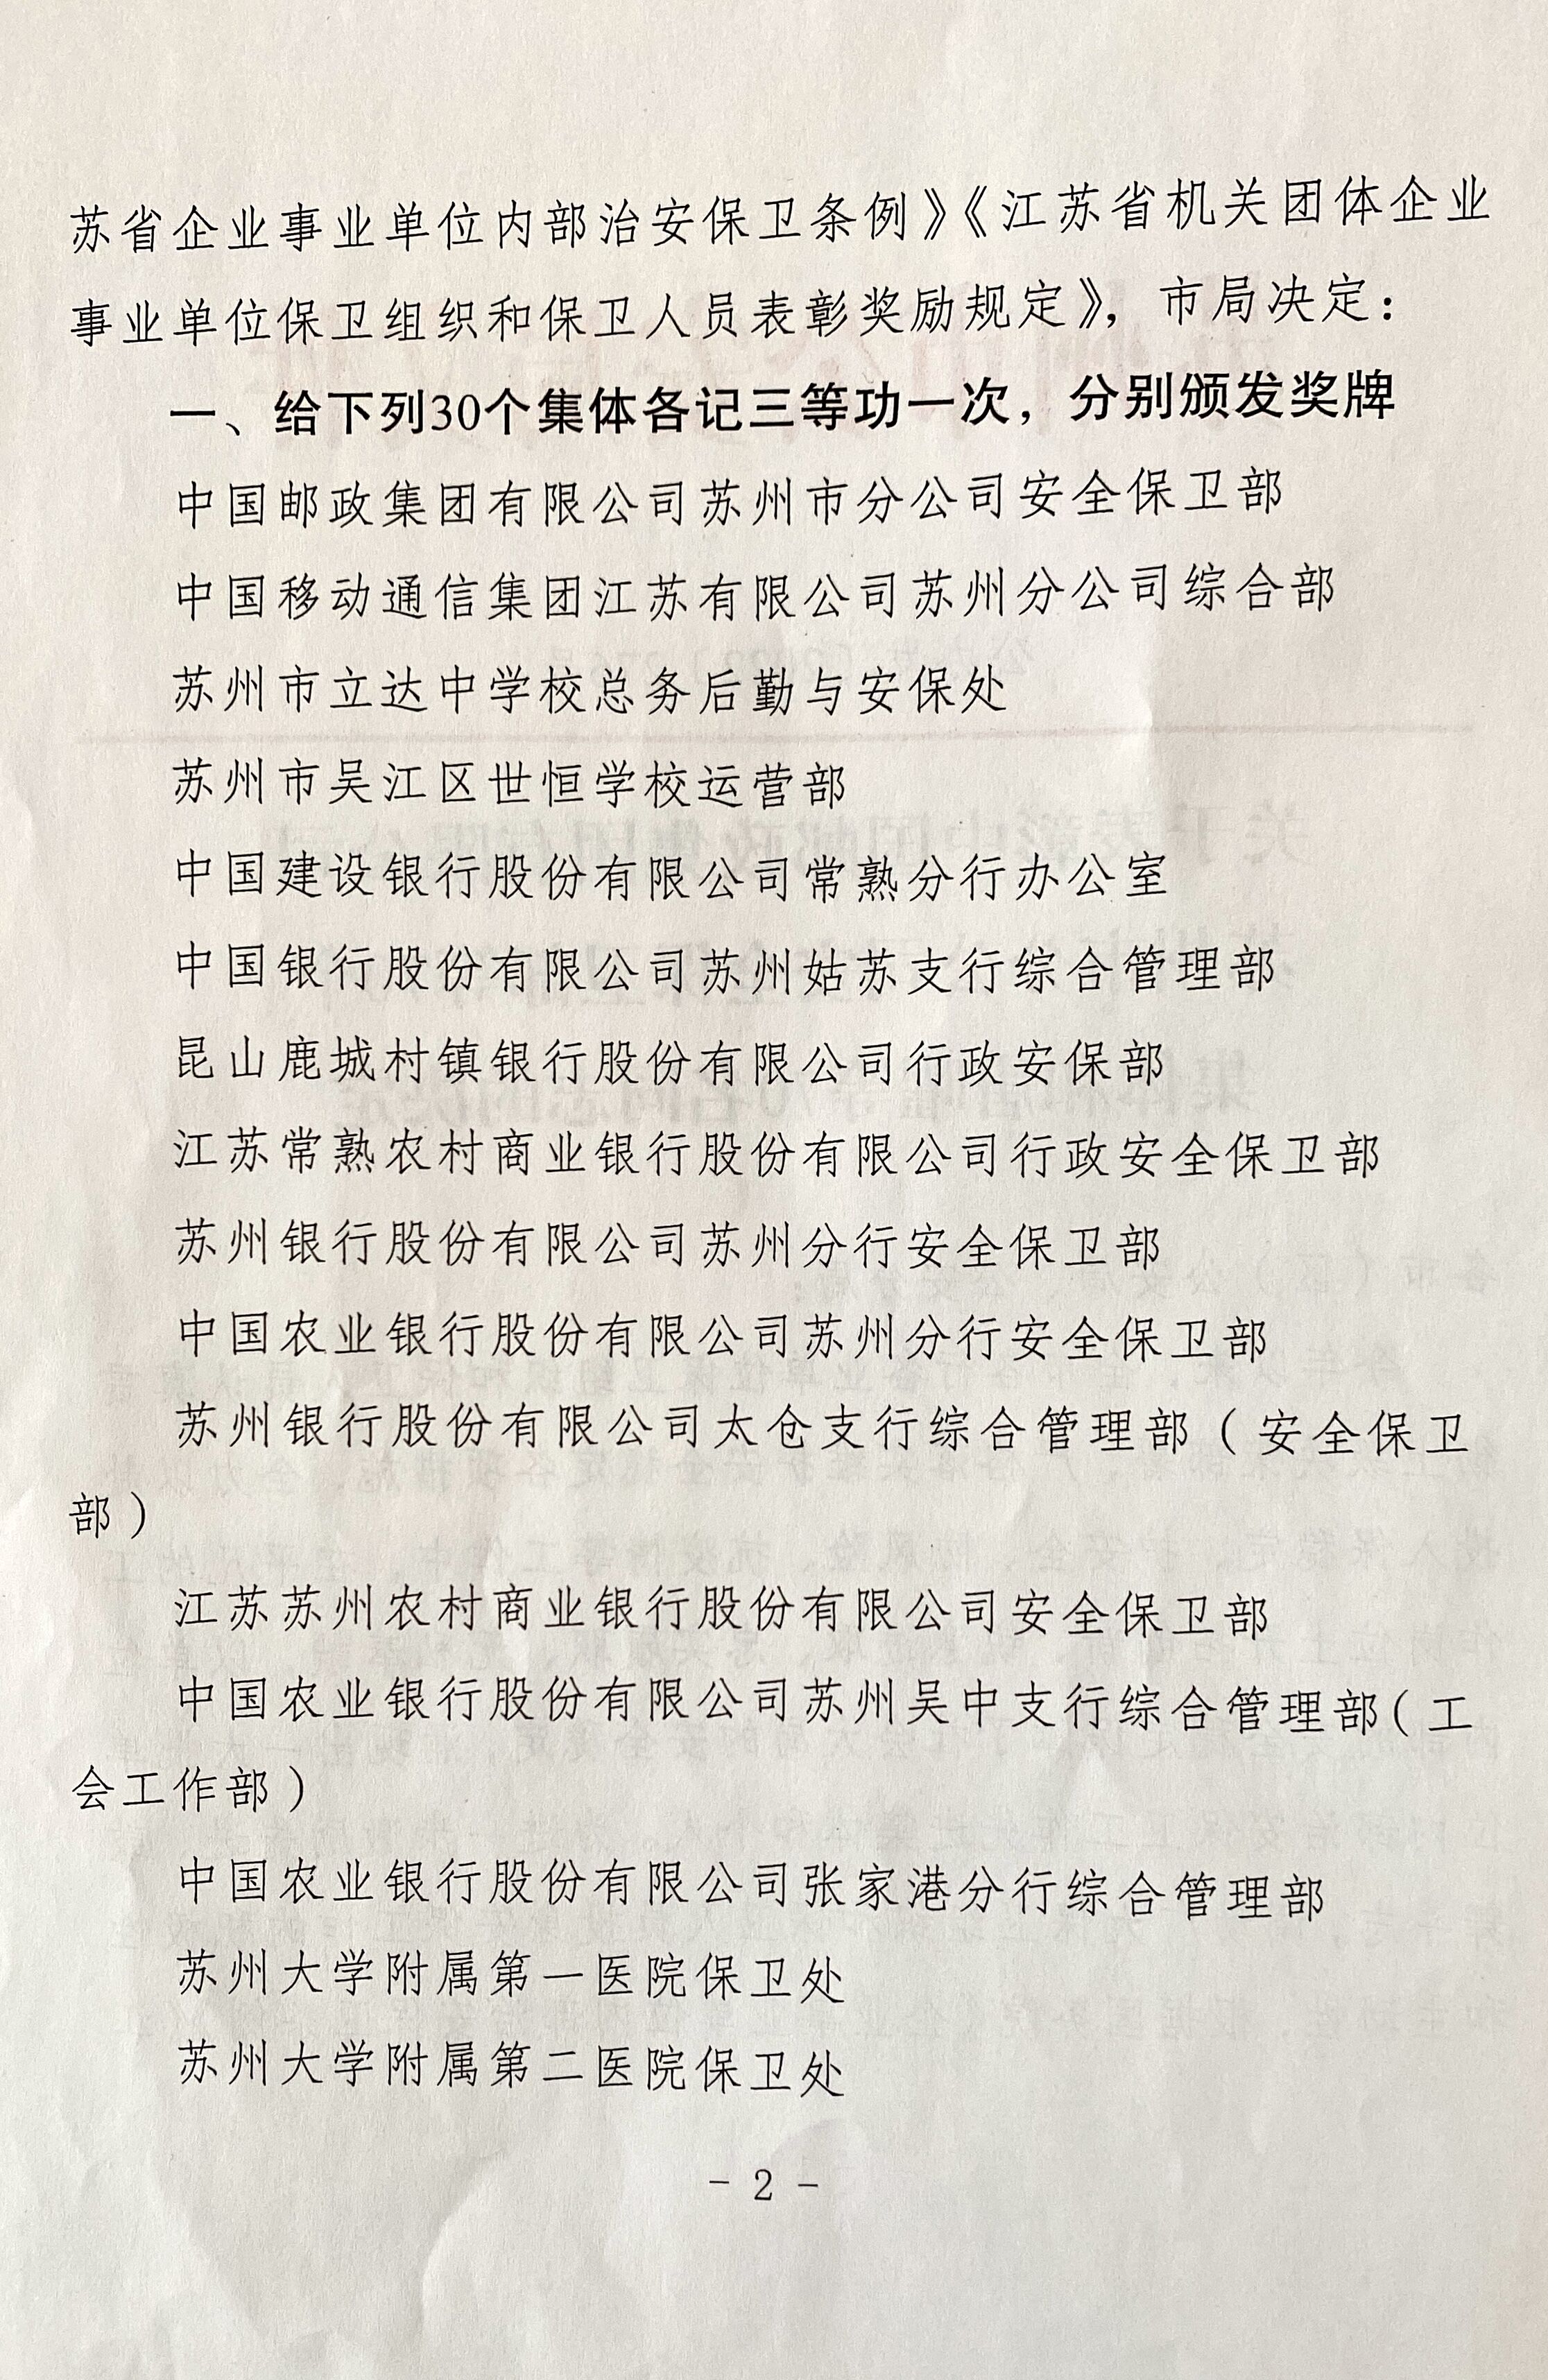 苏省企业事业单位内部治安保卫条例》《江苏省机关团体企业
事业单位保卫组织和保卫人员表彰奖励规定》，市局决定：
一、给下列30个集体各记三等功一次，分别颁发奖牌
中国邮政集团有限公司苏州市分公司安全保卫部
中国移动通信集团江苏有限公司苏州分公司综合部
苏州市立达中学校总务后勤与安保处
苏州市吴江区世恒学校运营部
中国建设银行股份有限公司常熟分行办公室
中国银行股份有限公司苏州姑苏支行综合管理部
昆山鹿城村镇银行股份有限公司行政安保部
江苏常熟农村商业银行股份有限公司行政安全保卫部
苏州银行股份有限公司苏州分行安全保卫部
中国农业银行股份有限公司苏州分行安全保卫部
苏州银行股份有限公司太仓支行综合管理部（安全保卫
部）
江苏苏州农村商业银行股份有限公司安全保卫部
中国农业银行股份有限公司苏州吴中支行综合管理部（工
会工作部）
中国农业银行股份有限公司张家港分行综合管理部
苏州大学附属第一医院保卫处
苏州大学附属第二医院保卫处
- 2 -